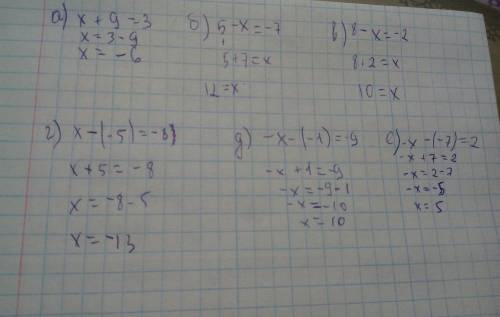 а) x + 9 = 3
x = 3 - 9
x = -6
б) 5 - x = -7
5 + 7 = x
12 = x
в) 8 - x = -2
8 + 2 = x
10 = x
г) x - (-5) = -8
x + 5 = -8
x = -8 - 5
x = -13
д) -x - (-1) = -9
-x + 1 = -9
-x = -9 - 1
-x = -10
x = 10
е) -x - (-7) = 2
-x + 7 = 2
-x = 2 - 7
-x = -5
x = 5